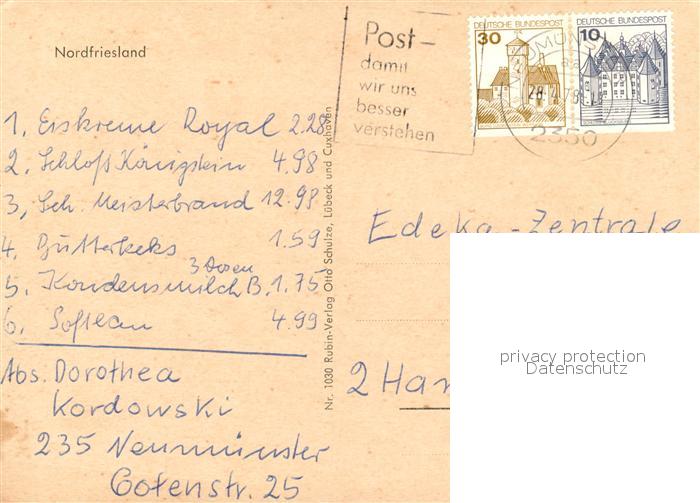 Nordfriesland
1, Eiskreme Royal 2.28
2, Schloß Königstein 4.98
3, Sch. Meisterbrand 12.98
4. Butterkeks 1.59
3 Dosen
5. Kondensmilch B. 1.75
6. Softlan 4.99
Abs. Dorothea
Kordowski
235 Neumünster
Gotenstr. 25
Nr. 1030 Rubin-Verlag Otto Schulze, Lübeck und Cuxhaven
Post-
damit
wir uns
besser
verstehen
30 DEUTSCHE BUNDESPOST
10 DEUTSCHE BUNDESPOST
2350
Edeka-Zentrale
2 Ham
privacy protection
Datenschutz